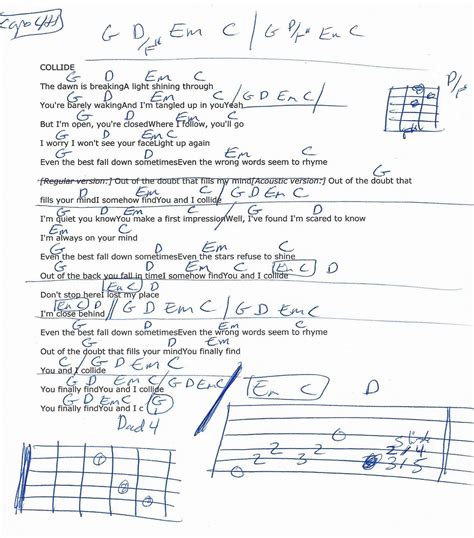 Capo 4th
G D/F# Em C / G D/F# Em C
COLLIDE
G D Em C
The dawn is breakingA light shining through
G D Em C / G D Em C /
You're barely wakingAnd I'm tangled up in youYeah
G D Em C
But I'm open, you're closedWhere I follow, you'll go
G D Em C
I worry I won't see your faceLight up again
G D Em C
Even the best fall down sometimesEven the wrong words seem to rhyme
G
[Regular version:] Out of the doubt that fills my mind[Acoustic version:] Out of the doubt that
D Em C / G D Em C
fills your mindI somehow findYou and I collide
G D C
I'm quiet you knowYou make a first impressionWell, I've found I'm scared to know
Em C
I'm always on your mind
G D Em C
Even the best fall down sometimesEven the stars refuse to shine
G D Em C Em C D
Out of the back you fall in timeI somehow findYou and I collide
Em C D
Don't stop hereI lost my place
Em C D // G D Em C / G D Em C
I'm close behind
G D Em C
Even the best fall down sometimesEven the wrong words seem to rhyme
G D Em
Out of the doubt that fills your mindYou finally find
C / G D Em C
You and I collide
G D Em C / G D Em C
You finally findYou and I collide
G D Em C G
You finally findYou and I c
Em C D
D/F#
1
2
3
0 2 2 3 2 0
2/4
3/5